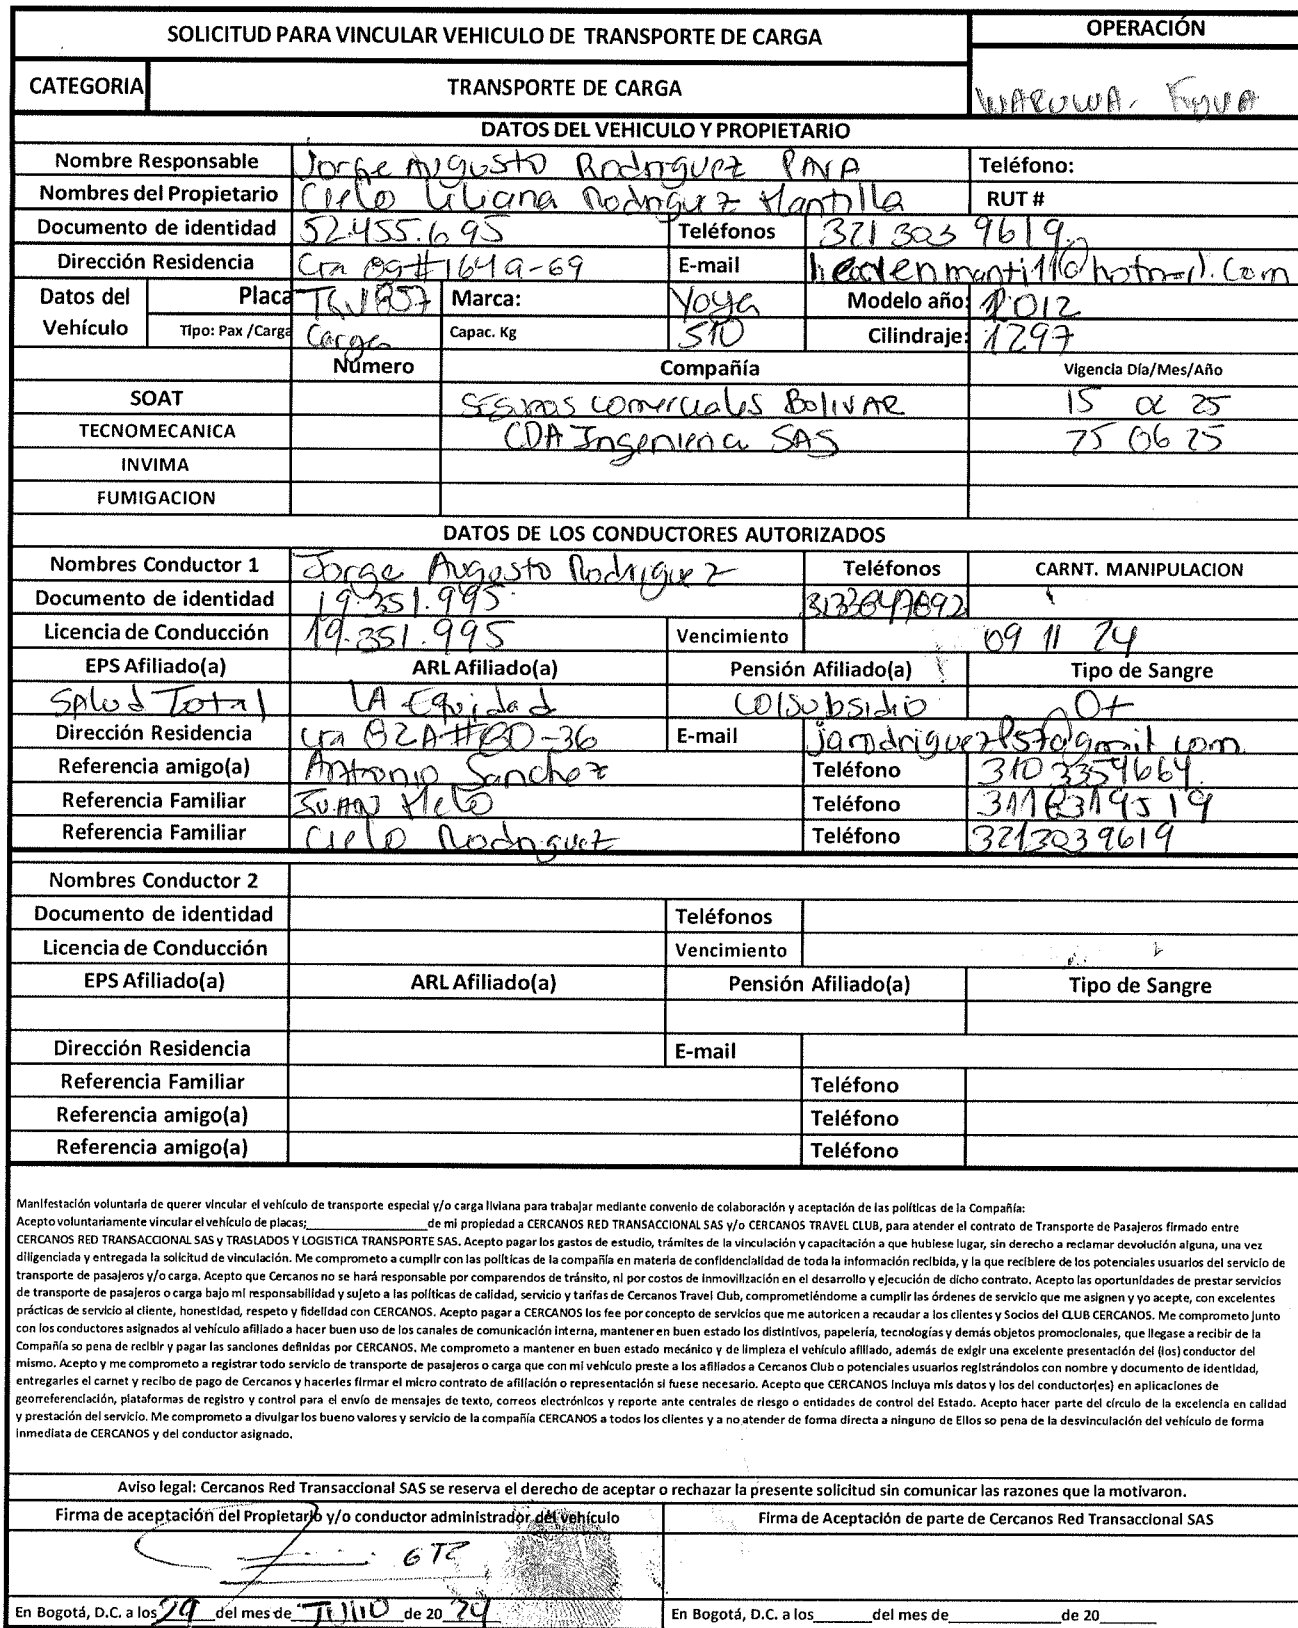 SOLICITUD PARA VINCULAR VEHICULO DE TRANSPORTE DE CARGA
OPERACIÓN
CATEGORIA
TRANSPORTE DE CARGA
WARUWA.
DATOS DEL VEHICULO Y PROPIETARIO
Nombre Responsable Jorge Augusto Rodriguez Teléfono:
Nombres del Propietario Cielo Liliana Rodriguez Mantilla RUT #
Documento de identidad 52.455.695 Teléfonos 321 303 9619
Dirección Residencia Cra 89#1649-69 E-mail
Datos del Vehículo Placa Marca: Yoya Modelo año: 2012
Tipo: Pax /Carga Carga Capac. Kg 510 Cilindraje: 1297
Número Compañía Vigencia Día/Mes/Año
SOAT Seguros comerciales BolivAR 15 25
TECNOMECANICA CDA Ingenieria SAS 25 06 25
INVIMA
FUMIGACION
DATOS DE LOS CONDUCTORES AUTORIZADOS
Nombres Conductor 1 Jorge Augusto Rodriguez Teléfonos CARNT. MANIPULACION
Documento de identidad 19.351.995
Licencia de Conducción 19.351.995 Vencimiento 09 11 24
EPS Afiliado(a) ARL Afiliado(a) Pensión Afiliado(a) Tipo de Sangre
Salud Total LA Equidad Colsubsidio O+
Dirección Residencia Cra 82A#8D-36 E-mail
Referencia amigo(a) Antonio Sanchez Teléfono 3103359664
Referencia Familiar JUAN Melo Teléfono
Referencia Familiar Cielo Rodriguez Teléfono 3213039619
Nombres Conductor 2
Documento de identidad Teléfonos
Licencia de Conducción Vencimiento
EPS Afiliado(a) ARL Afiliado(a) Pensión Afiliado(a) Tipo de Sangre
Dirección Residencia E-mail
Referencia Familiar Teléfono
Referencia amigo(a) Teléfono
Referencia amigo(a) Teléfono
Manifestación voluntaria de querer vincular el vehículo de transporte especial y/o carga liviana para trabajar mediante convenio de colaboración y aceptación de las políticas de la Compañía:
Acepto voluntariamente vincular el vehículo de placas;____________________de mi propiedad a CERCANOS RED TRANSACCIONAL SAS y/o CERCANOS TRAVEL CLUB, para atender el contrato de Transporte de Pasajeros firmado entre
CERCANOS RED TRANSACCIONAL SAS y TRASLADOS Y LOGISTICA TRANSPORTE SAS. Acepto pagar los gastos de estudio, trámites de la vinculación y capacitación a que hubiese lugar, sin derecho a reclamar devolución alguna, una vez
diligenciada y entregada la solicitud de vinculación. Me comprometo a cumplir con las políticas de la compañía en materia de confidencialidad de toda la información recibida, y la que recibiere de los potenciales usuarios del servicio de
transporte de pasajeros y/o carga. Acepto que Cercanos no se hará responsable por comparendos de tránsito, ni por costos de inmovilización en el desarrollo y ejecución de dicho contrato. Acepto las oportunidades de prestar servicios
de transporte de pasajeros o carga bajo mi responsabilidad y sujeto a las políticas de calidad, servicio y tarifas de Cercanos Travel Club, comprometiéndome a cumplir las órdenes de servicio que me asignen y yo acepte, con excelentes
prácticas de servicio al cliente, honestidad, respeto y fidelidad con CERCANOS. Acepto pagar a CERCANOS los fee por concepto de servicios que me autoricen a recaudar a los clientes y Socios del CLUB CERCANOS. Me comprometo junto
con los conductores asignados al vehículo afiliado a hacer buen uso de los canales de comunicación interna, mantener en buen estado los distintivos, papelería, tecnologías y demás objetos promocionales, que llegase a recibir de la
Compañía so pena de recibir y pagar las sanciones definidas por CERCANOS. Me comprometo a mantener en buen estado mecánico y de limpieza el vehículo afiliado, además de exigir una excelente presentación del (los) conductor del
mismo. Acepto y me comprometo a registrar todo servicio de transporte de pasajeros o carga que con mi vehículo preste a los afiliados a Cercanos Club o potenciales usuarios registrándolos con nombre y documento de identidad,
entregarles el carnet y recibo de pago de Cercanos y hacerles firmar el micro contrato de afiliación o representación si fuese necesario. Acepto que CERCANOS incluya mis datos y los del conductor(es) en aplicaciones de
georreferenciación, plataformas de registro y control para el envío de mensajes de texto, correos electrónicos y reporte ante centrales de riesgo o entidades de control del Estado. Acepto hacer parte del círculo de la excelencia en calidad
y prestación del servicio. Me comprometo a divulgar los bueno valores y servicio de la compañía CERCANOS a todos los clientes y a no atender de forma directa a ninguno de Ellos so pena de la desvinculación del vehículo de forma
inmediata de CERCANOS y del conductor asignado.
Aviso legal: Cercanos Red Transaccional SAS se reserva el derecho de aceptar o rechazar la presente solicitud sin comunicar las razones que la motivaron.
Firma de aceptación del Propietario y/o conductor administrador del vehículo Firma de Aceptación de parte de Cercanos Red Transaccional SAS
En Bogotá, D.C. a los 29 del mes de JULIO de 20 24 En Bogotá, D.C. a los_______del mes de____________de 20______